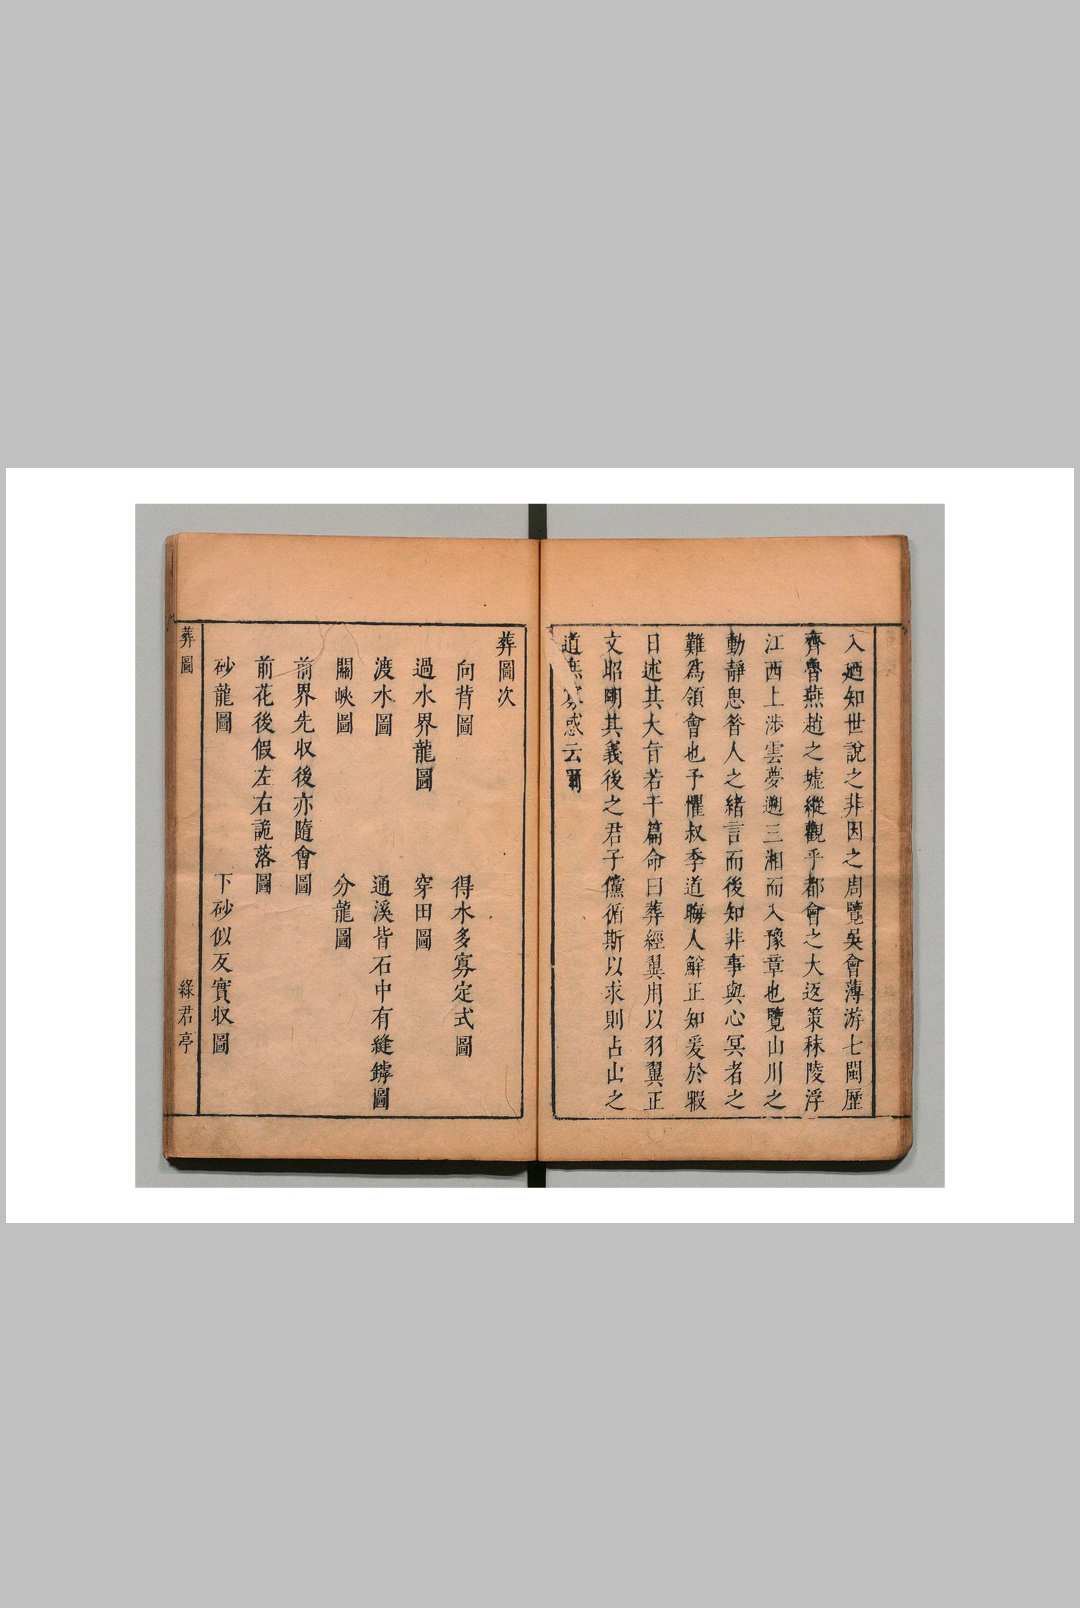 入廼知世說之非因之周覽吳會薄游七閩歷
齊魯燕趙之墟縱觀乎都會之大返策秣陵浮
江西上涉雲夢遡三湘而入豫章也覽山川之
動靜思昝人之緒言而後知非事與心冥者之
難為領會也予懼叔季道晦人鮮正知爰於暇
日述其大旨若干篇命曰葬經翼用以羽翼正
文昭明其義後之君子儻循斯以求則占山之
道無惑云爾
葬圖次
向背圖 得水多寡定式圖
過水界龍圖 穿田圖
渡水圖 通溪皆石中有縫鏬圖
關峽圖 分龍圖
前界先収後亦隨會圖
前花後假左右詭落圖
砂龍圖 下砂似反實収圖
葬圖 綠君亭